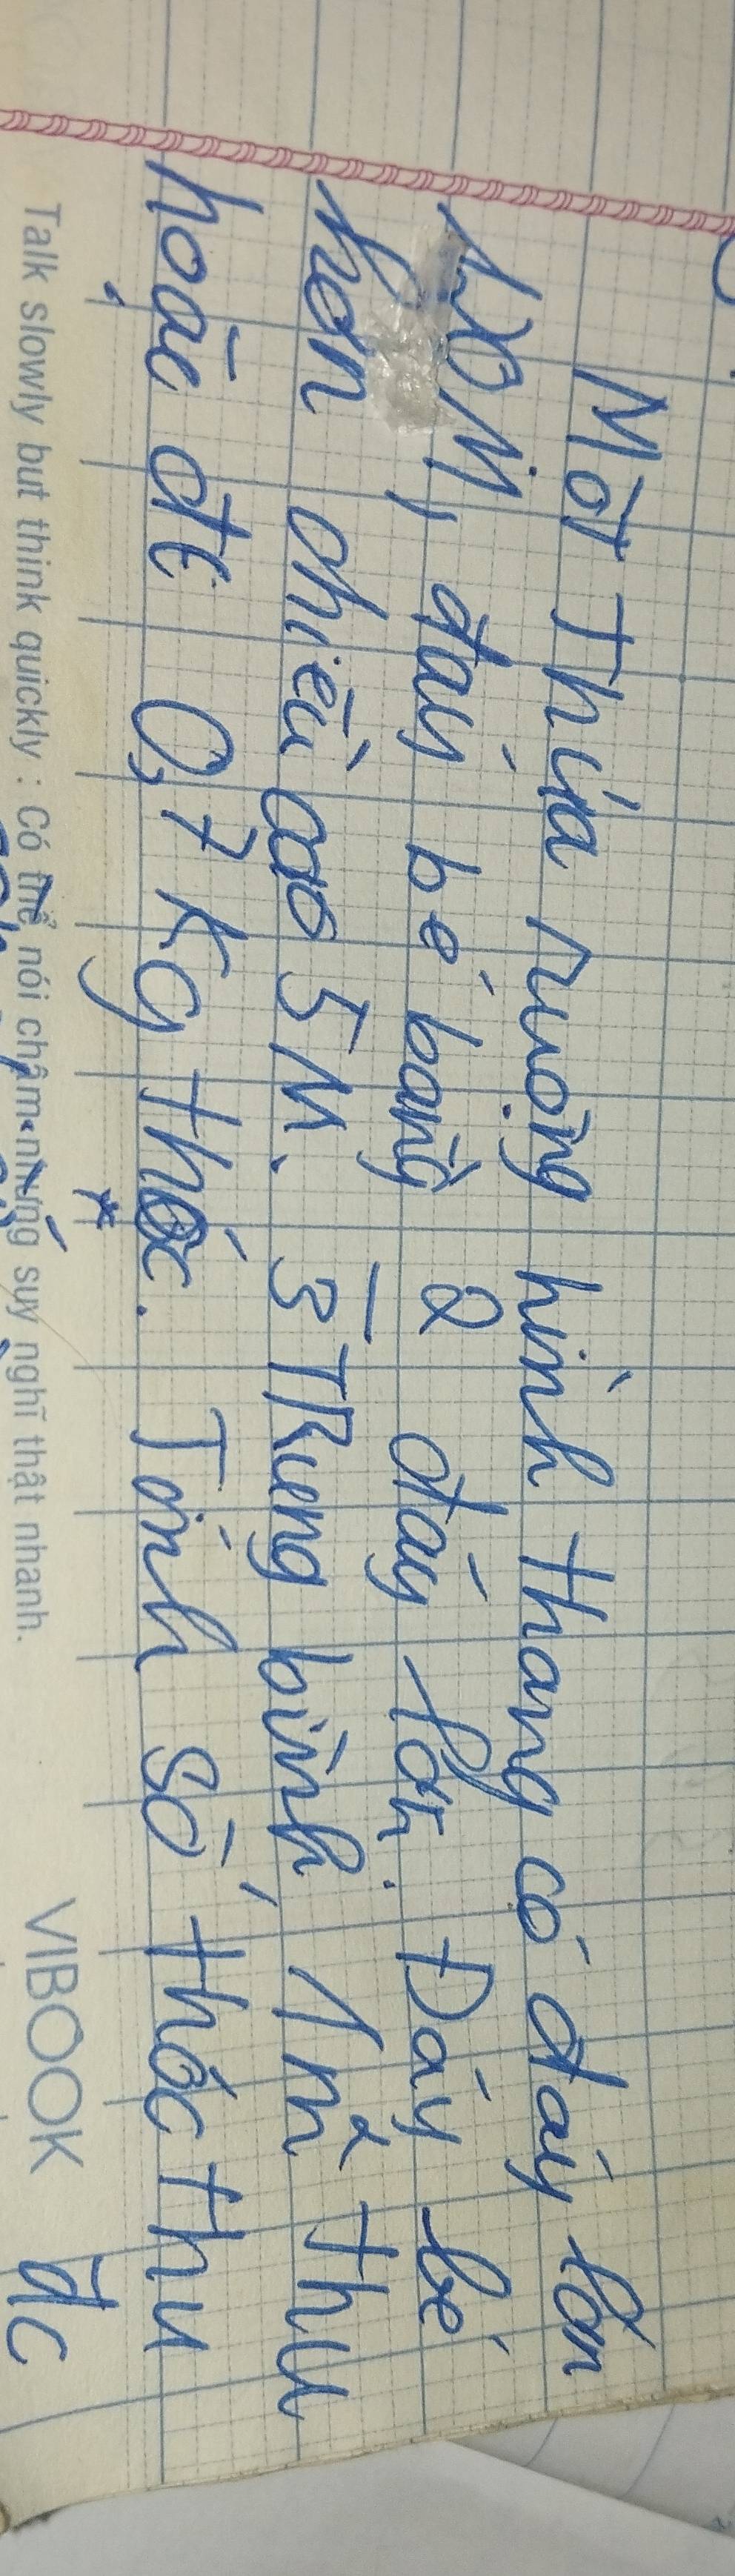 Một thửa ruộng hình thang có đáy lớn
120 M, đáy bé bằng 2 đáy lớn. Đáy bé
hơn chiều cao 5 M. 3 Trung bình, 1 m² thu
hoặc đt 0,7 kg thóc. Tính số thóc thu
đc
Talk slowly but think quickly : Có thể nói chậm nhưng suy nghĩ thật nhanh.
VIBOOK